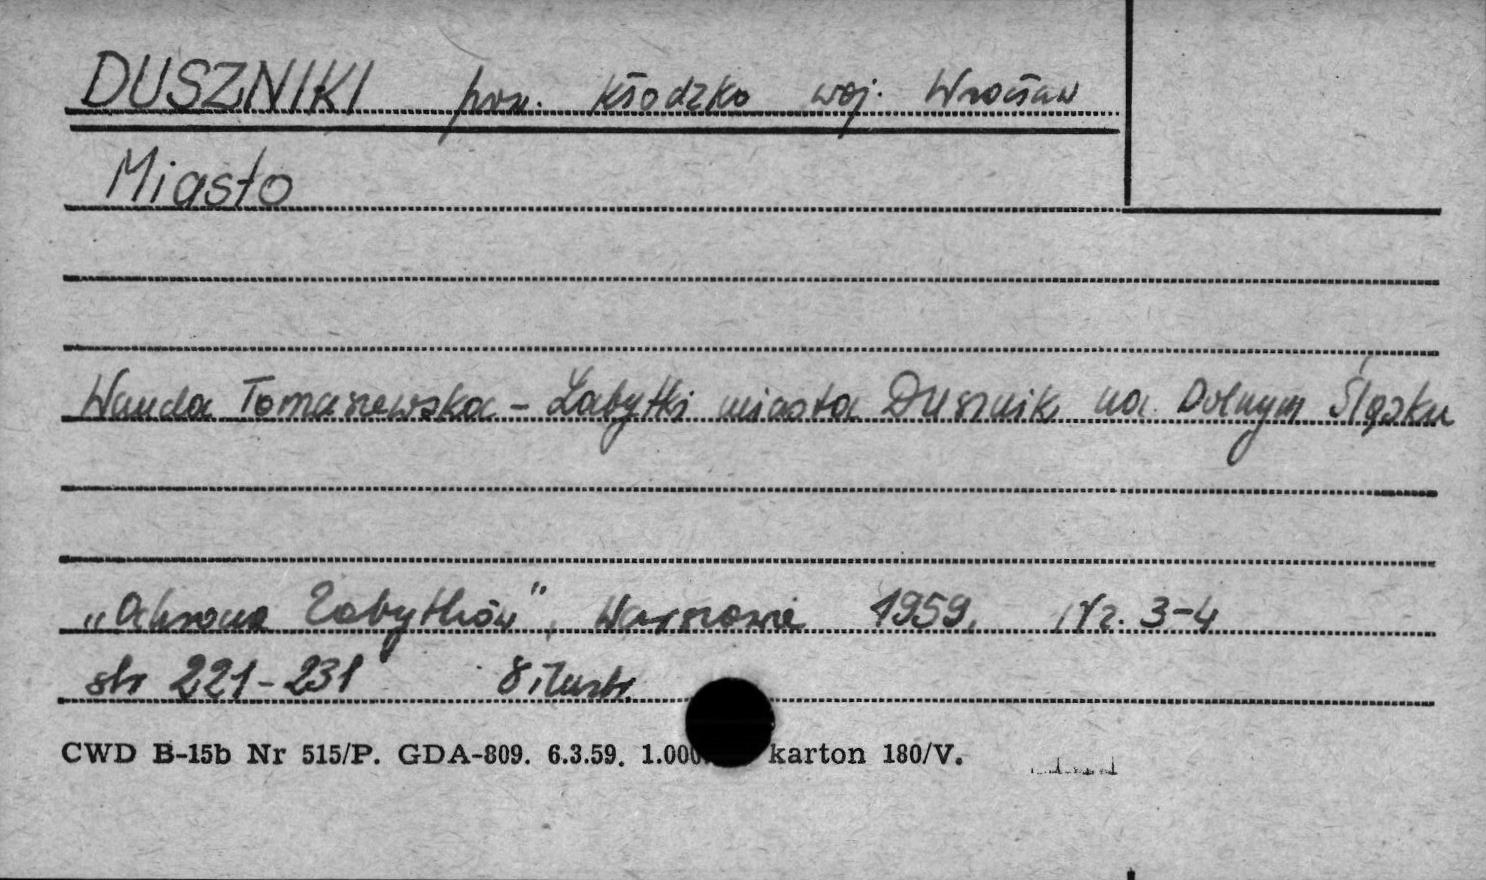 DUSZNIKI pow. Kłodzko woj. Wrocław
Miasto
Wanda Tomaszewska - Zabytki miasta Dusznik na Dolnym Śląsku
„Ochrona Zabytków", Warszawa 1959. Nr. 3-4
str 221-231 8 ilustr.
CWD B-15b Nr 515/P. GDA-809. 6.3.59. 1.000 karton 180/V.